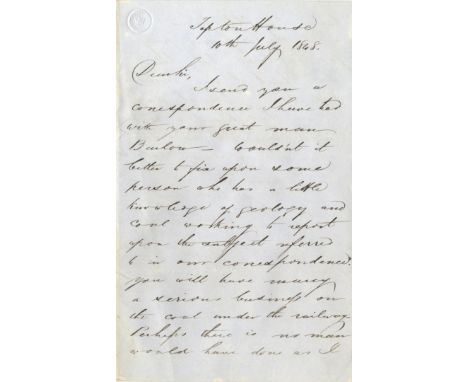 Tapton House
10th July 1848.
Dear Sir,
I send you a
correspondence I have had
with your great man
Barlow – wouldn't it
better to fix upon some
person who has a little
knowledge of geology and
coal working to report
upon the subject referred
to in our correspondence.
you will have many
a serious business on
the coal under the railway
Perhaps there is no man
would have done as I